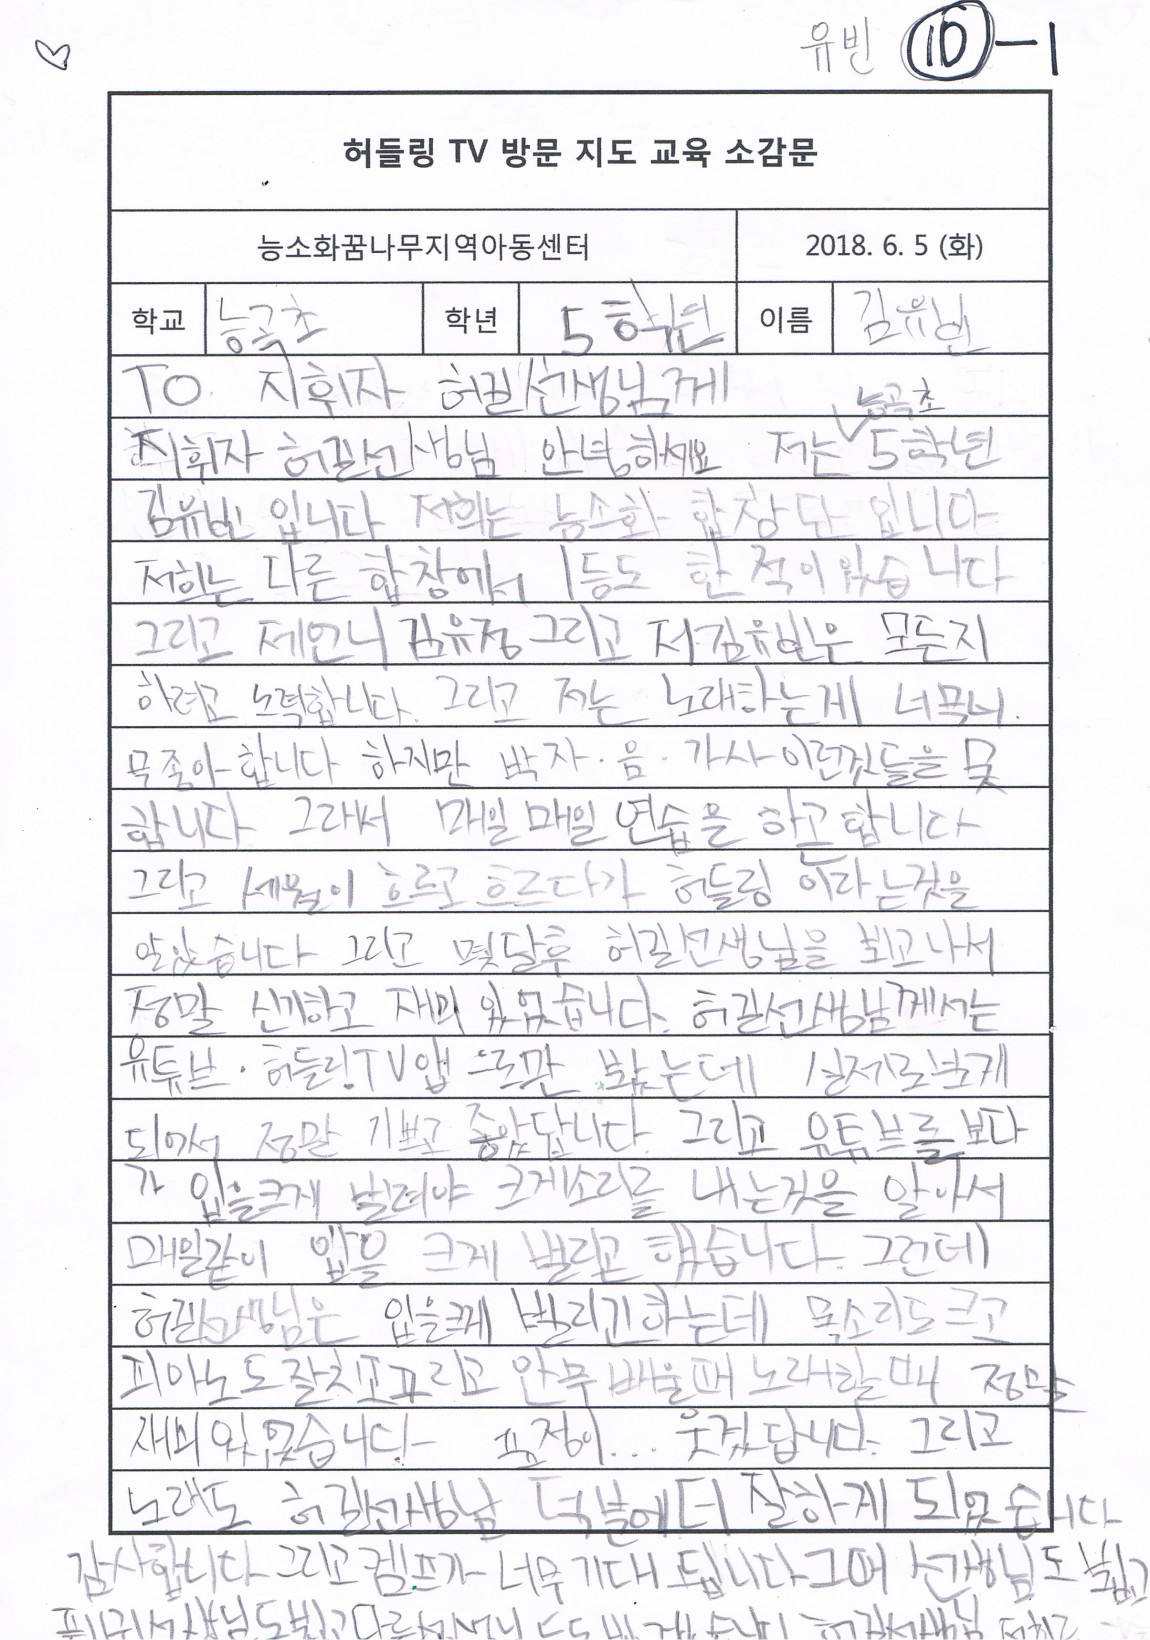 유빈 10-1
허들링 TV 방문 지도 교육 소감문
능소화꿈나무지역아동센터 2018. 6. 5 (화)
학교 능곡초 학년 5학년 이름 김유빈
TO. 지휘자 허길선생님께
능곡초
지휘자 허길선생님 안녕하세요 저는 5학년
김유빈 입니다 저희는 능소화 합창단 입니다
저희는 다른 합창에서 1등도 한 적이 있습니다
그리고 제언니 김유정 그리고 저김유빈은 모든지
하려고 노력합니다. 그리고 저는 노래하는게 너무너
무좋아 합니다 하지만 박자·음·가사 이런것들을 못
합니다. 그래서 매일 매일 연습을 하고 합니다
그리고 세월이 흐르고 흐르다가 허들링 이라는것을
알았습니다 그리고 몇달후 허길선생님을 뵈고나서
정말 신기하고 재미 있었습니다. 허길선생님께서는
유튜브·허들링TV앱 으로만 봤는데 실제로보게
되어서 정말 기쁘고 좋았답니다. 그리고 유튜브를 보다
가 입을크게 벌려야 크게소리를 내는것을 알아서
매일같이 입을 크게 벌리고 했습니다. 그런데
허길선생님은 입을크게 벌리긴하는데 목소리도 크고
피아노도잘치고그리고 안무 배울때 노래할 때 정말
재미 있었습니다. 표정이... 웃겼답니다. 그리고
노래도 허길선생님 덕분에 더 잘하게 되었습니다
감사합니다 그리고 캠프가 너무 기대 됩니다 선생님도 뵙고